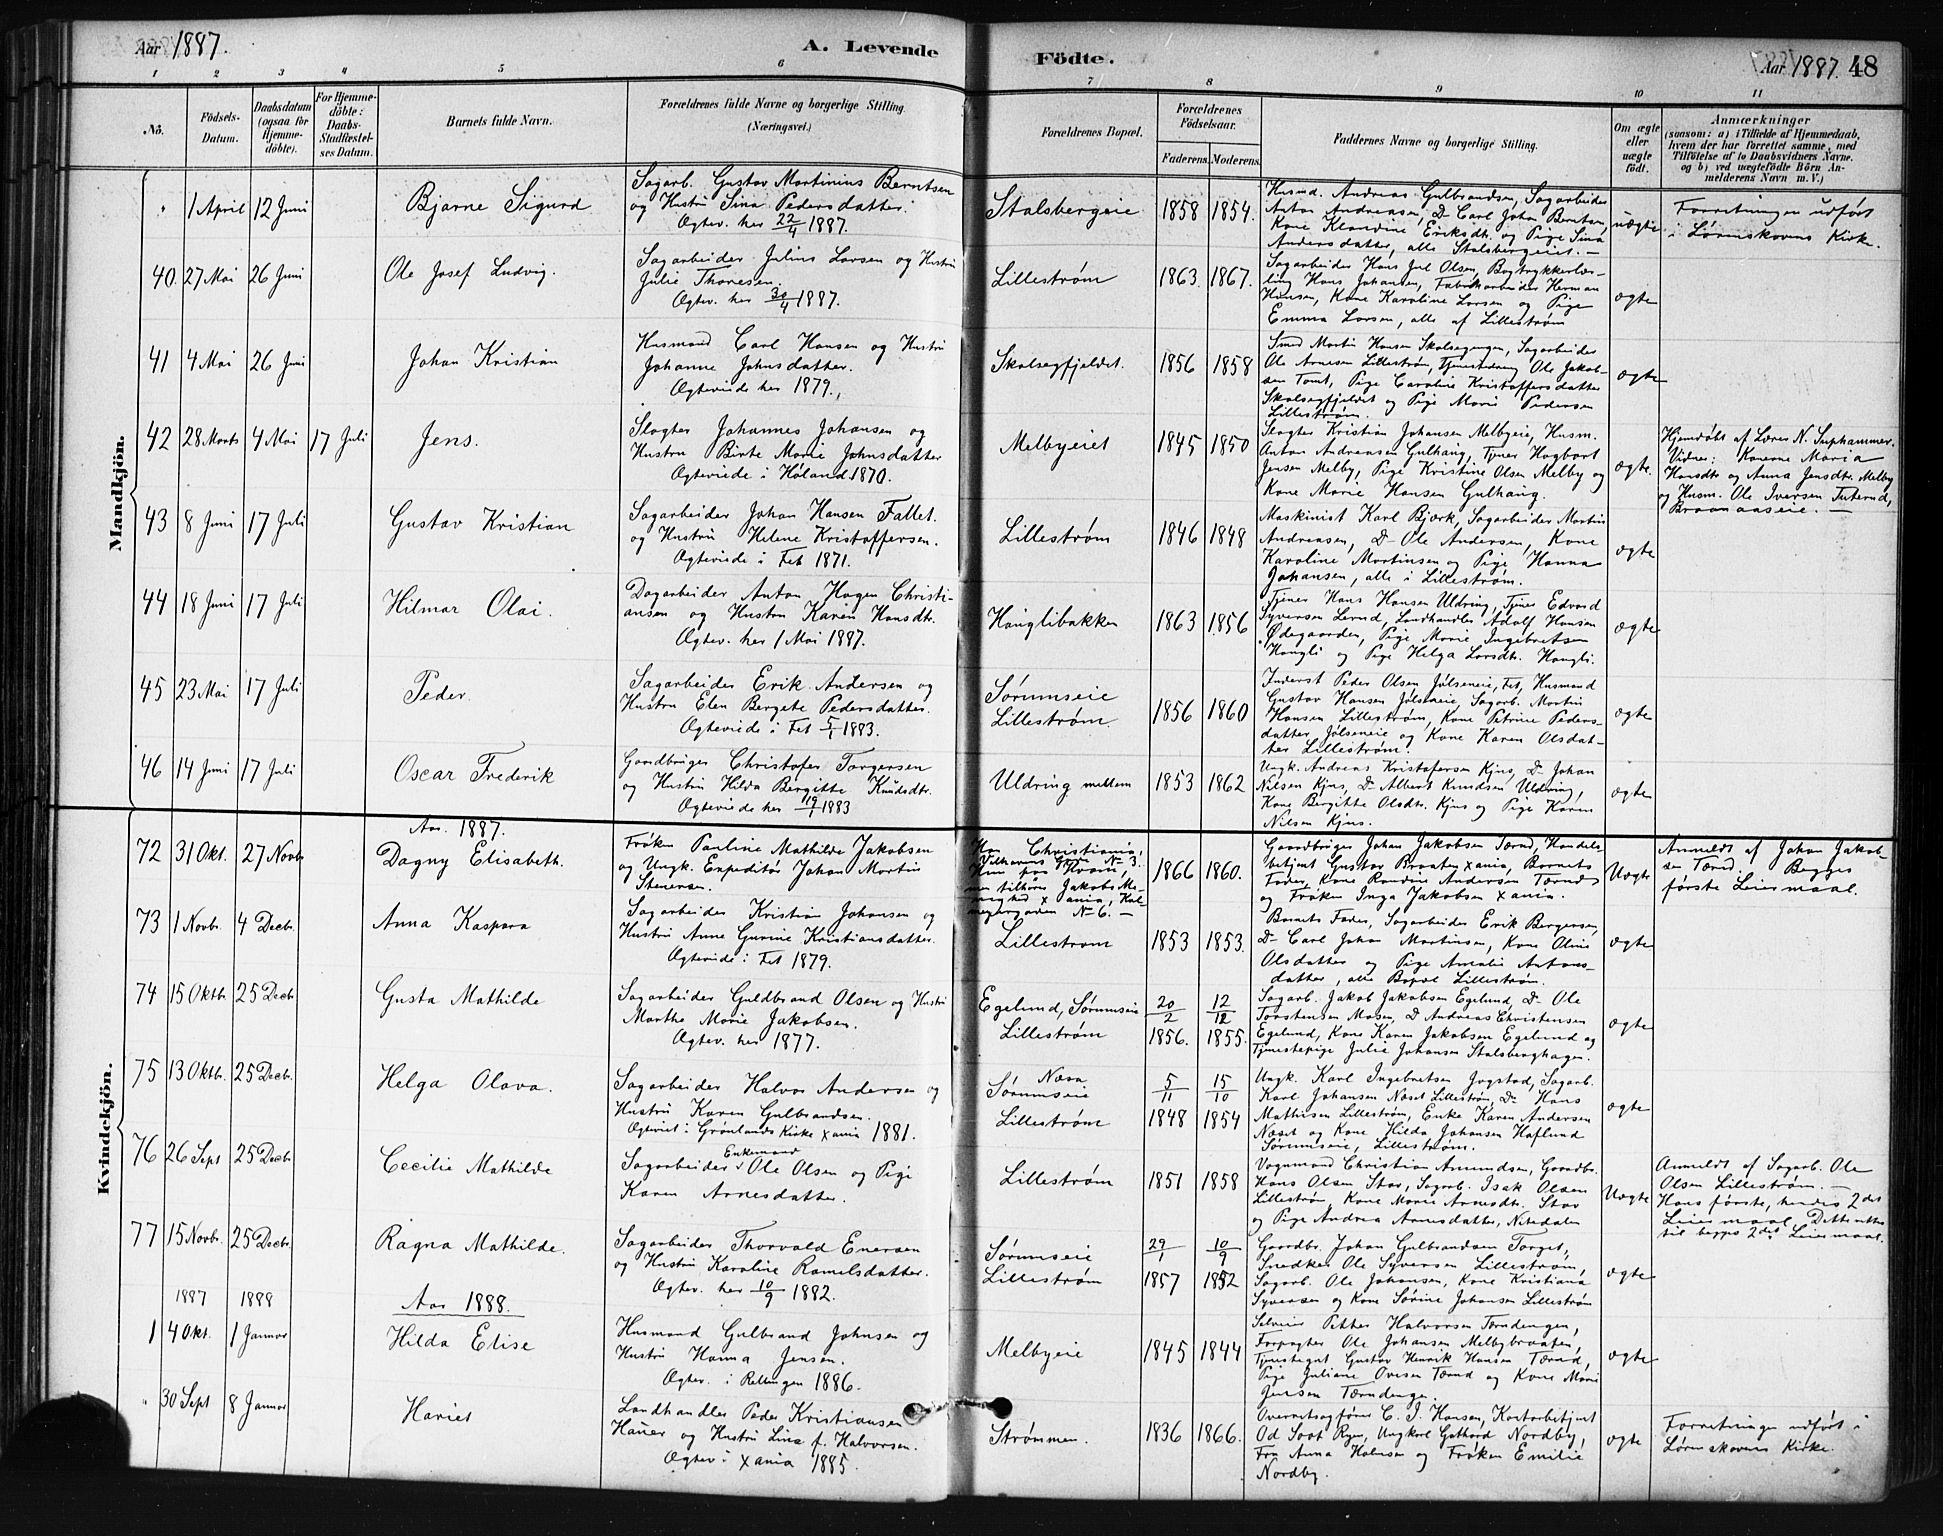 Aar 1887.
A. Levende Födte.
Aar 1887. 48
1 2 3 4 5 6 7 8 9 10 11
No.
Födsels-Datum.
Daabsdatum (ogsaa for Hjemmedöbte).
For Hjemmedöbte: Daabs-Stadfæstelses Datum.
Barnets fulde Navn.
Forældrenes fulde Navne og borgerlige Stilling. (Næringsvei.)
Forældrenes Bopæl.
Forældrenes Födselsaar.
Faderens. Moderens.
Faddernes Navne og borgerlige Stilling.
Om ægte eller uægte födt.
Anmærkninger
(saasom: a) i Tilfælde af Hjemmedaab, hvem der har forrettet samme, med Tilföielse af to Daabsvidners Navne. og b) ved uægtefödte Börn Anmelderens Navn m. V.)
Mandkjön.
" 1 April 12 Juni
Bjarne Sigurd
Sagarb. Gustav Martinius Berntsen
og Hustru Sina Pedersdatter.
Ogtev. her 22/4 1887.
Stalsbergeie 1858 1854.
Husmd. Andreas Gulbrandsen, Sagarbeider
Anton Andreasen, Do Carl Johan Berntsen,
Kone Klaudine Eriksdt. og Pige Sina
Andersdatter, alle Stalsbergeiet. —
uægte
Forretningen udført
i Lørenskovens Kirke.
40. 27 Mai 26 Juni
Ole Josef Ludvig.
Sagarbeider Julius Larsen og Hustru
Julie Thoresen.
Ogtev. her 30/4 1887.
Lillestrøm 1863 1867.
Sagarbeider Hans Jul Olsen, Bogtrykkerlær-
ling Hans Johansen, Fabrikarbeider Herman
Hansen, Kone Karoline Larsen og Pige
Emma Larsen, alle af Lillestrøm
ægte
41 4 Mai 26 Juni
Johan Kristian
Husmand Carl Hansen og Hustru
Johanne Johnsdatter.
Ogteviede her 1879.,
Skalsegfjeldet. 1856 1858
Smed Martin Hansen Skalsegengen, Sagarbeider
Ole Arnesen Lillestrøm, Tjenestedreng Ole Jakob-
sen Tomt, Pige Caroline Kristoffersdatter
Skalsegfjeldet og Pige Marie Pedersen
Lillestrøm.
ægte
42 28 Marts 4 Mai 17 Juli
Jens.
Slagter Johannes Johansen og
Hustru Birte Marie Johnsdatter
Ogteviede i Høland 1870.
Melbyeiet 1845 1850
Slagter Kristian Johansen Melbyeie, Husm.
Anton Andreasen Gulhaug, Tjener Hagbart
Jensen Melby, Pige Kristine Olsen Melby og
Kone Marie Hansen Gulhaug.
ægte.
Hjemdøbt af Lærer N. Suphammer.
Vidner: Konerne Maria
Hansdtr og Anna Jensdtr. Melby
og Husm. Ole Iversen
43 8 Juni 17 Juli
Gustav Kristian
Sagarbeider Johan Hansen Fallet.
og Hustru Helene Kristoffersen.
Ogteviede i Fet 1871.
Lillestrøm 1846 1848
Maskinist Karl Bjork, Sagarbeider Martin
Andreasen, Do Ole Andersen, Kone
Karoline Martinsen og Pige Hanna
Johansen, alle i Lillestrøm.
ægte
44 18 Juni 17 Juli
Hilmar Olai.
Dagarbeider Anton Hagen Christi-
ansen og Hustru Karen Hansdtr.
Ogtev. her 1 Mai 1887.
Hauglibakken 1863 1856
Tjener Hans Hansen Uldring, Tjener Edvard
Syversen Lerud, Landhandler Adolf Hansen
Ødegaarden, Pige Marie Ingebretsen
Haugli og Pige Helga Larsdtr. Haugli.
ægte
45 23 Mai 17 Juli
Peder.
Sagarbeider Erik Andersen og
Hustru Elen Bergete Pedersdatter.
Ogteviede i Fet 5/1 1883.
Sørumseie
Lillestrøm. 1856 1860
Inderst Peder Olsen Jølseneie, Fet, Husmand
Gustav Hansen Jølseneie, Sagarb. Martin
Hansen Lillestrøm, Kone Petrine Peders-
datter Jølseneie og Kone Karen Olsdat-
ter Lillestrøm.
ægte
46 14 Juni 17 Juli
Oscar Frederik
Gaardbruger Christofer Torgersen
og Hustru Hilda Bergitte Knudsdtr.
Ogteviede her 19/7 1883
Uldring mellem 1853 1862
Ungk. Andreas Kristofersen Kjus, Do Johan
Nilsen Kjus, Do Albert Knudsen Uldring,
Kone Bergitte Olsdtr. Kjus og Pige Karen
Nilsen Kjus.
ægte
Kvindekjön.
Aar 1887.
72 31 Okt. 27 Novb.
Dagny Elisabeth.
Frøken Pauline Mathilde Jakobsen
og Ungk. Expeditør Johan Martin
Stenersen.
Han Christiania,
1866 1860.
Gaardbruger Johan Jakobsen Tærud, Handels-
betjent Gustav Braaten xania, Barnets
Fader, Kone Randine Andersen Tærud
og Frøken Inga Jakobsen xania.
Uægte
Anmeldt af Johan Jakob-
sen Tærud. Begges
første Leiermaal.
73 1 Novb. 4 Decb.
Anna Kaspara
Sagarbeider Kristian Johansen og
Hustru Anne Gurine Kristiansdatter.
Ogteviede i Fet 1879.
Lillestrøm 1853 1853.
Barnets Fader, Sagarbeider Erik Bergersen,
Do Carl Johan Martinsen, Kone Oline
Olsdatter og Pige Amalie Antons-
datter, alle Bopæl Lillestrøm.
ægte
74 15 Oktb. 25 Decb.
Gusta Mathilde
Sagarbeider Guldbrand Olsen og Hustru
Marthe Marie Jakobsen.
Ogtev. her 1877.
Egelund, Sørumseie
Lillestrøm
20/2 1856. 12/12 1855.
Sagarb. Jakob Jakobsen Egelund, Do Ole
Torstensen Mosen, Do Andreas Christensen
Egelund, Kone Karen Jakobsen Egelund og
Tjenestepige Julie Johansen Stalsberghagen.
ægte
75 13 Oktb. 25 Decb.
Helga Olava.
Sagarbeider Halvor Andersen og
Hustru Karen Gulbrandsen.
Ogteviet i Grønlands Kirke xania 1881.
Næsa
Sørumseie
Lillestrøm
5/11 1848 15/10 1854
Ungk. Karl Ingebretsen Jogstad, Sagarb.
Karl Johansen Næset Lillestrøm, Do Hans
Mathisen Lillestrøm, Enke Karen Andersen
Næset og Kone Hilda Johansen Haflund
Sørumseie, Lillestrøm.
ægte
76 26 Sept 25 Decb
Cecilie Mathilde
Sagarbeider Enkemand Ole Olsen og Pige
Karen Arnesdatter.
Lillestrøm 1851 1858
Vognmand Christian Amundsen, Gaardbr.
Hans Olsen Stav, Sagarb. Isak Olsen
Lillestrøm, Kone Marie Arnesdtr. Stav
og Pige Andrea Arnesdatter, Nitedalen
Uægte
Anmeldt af Sagarb. Ole
Olsen Lillestrøm. —
Hans første, hendes 2det
Leiermaal.
77 15 Novb. 25 Decb.
Ragna Mathilde.
Sagarbeider Thorvald Enersen
og Hustru Karoline Ramelsdatter.
Ogtev. her 10/9 1882.
Sørumseie
Lillestrøm
29/1 1857 10/9 1852
Gaardbr. Johan Gulbrandsen Torget,
Snedker Ole Syversen Lillestrøm,
Sagarb. Ole Johansen, Kone Kristiana
Syversen og Kone Sørine Johansen Lillestrøm
ægte
1887 1888
Aar 1888.
1 4 Okt. 1 Januar
Hilda Elise
Husmand Gulbrand Johnsen og
Hustru Hanna Jensen.
Ogtev. i Rellingen 1886.
Melbyeie 1845 1844
Selveier Petter Halvorsen Tærudengen,
Forpagter Ole Johansen Melbybraaten,
Tjenestegut Gustav Henrik Hansen Tærud,
Pige Juliane Ovesen Tærud og Kone Marie
Jensen Tærudenge.
ægte
" 30 Sept 8 Januar
Hariet
Landhandler Peder Kristiansen
Hauer og Hustru Lina f. Halvorsen.
Ogtev. i xania 1885.
Strømmen. 1836 1866.
Overretssagfører C. J. Hansen, Kontorbetjent
Od Soot Ryen, Ungkarl Gothard Nordby,
Fru Anna Halvorsen og Frøken Emilie
Nordby.
ægte
Forretningen udført i
Lørenskovens Kirke.